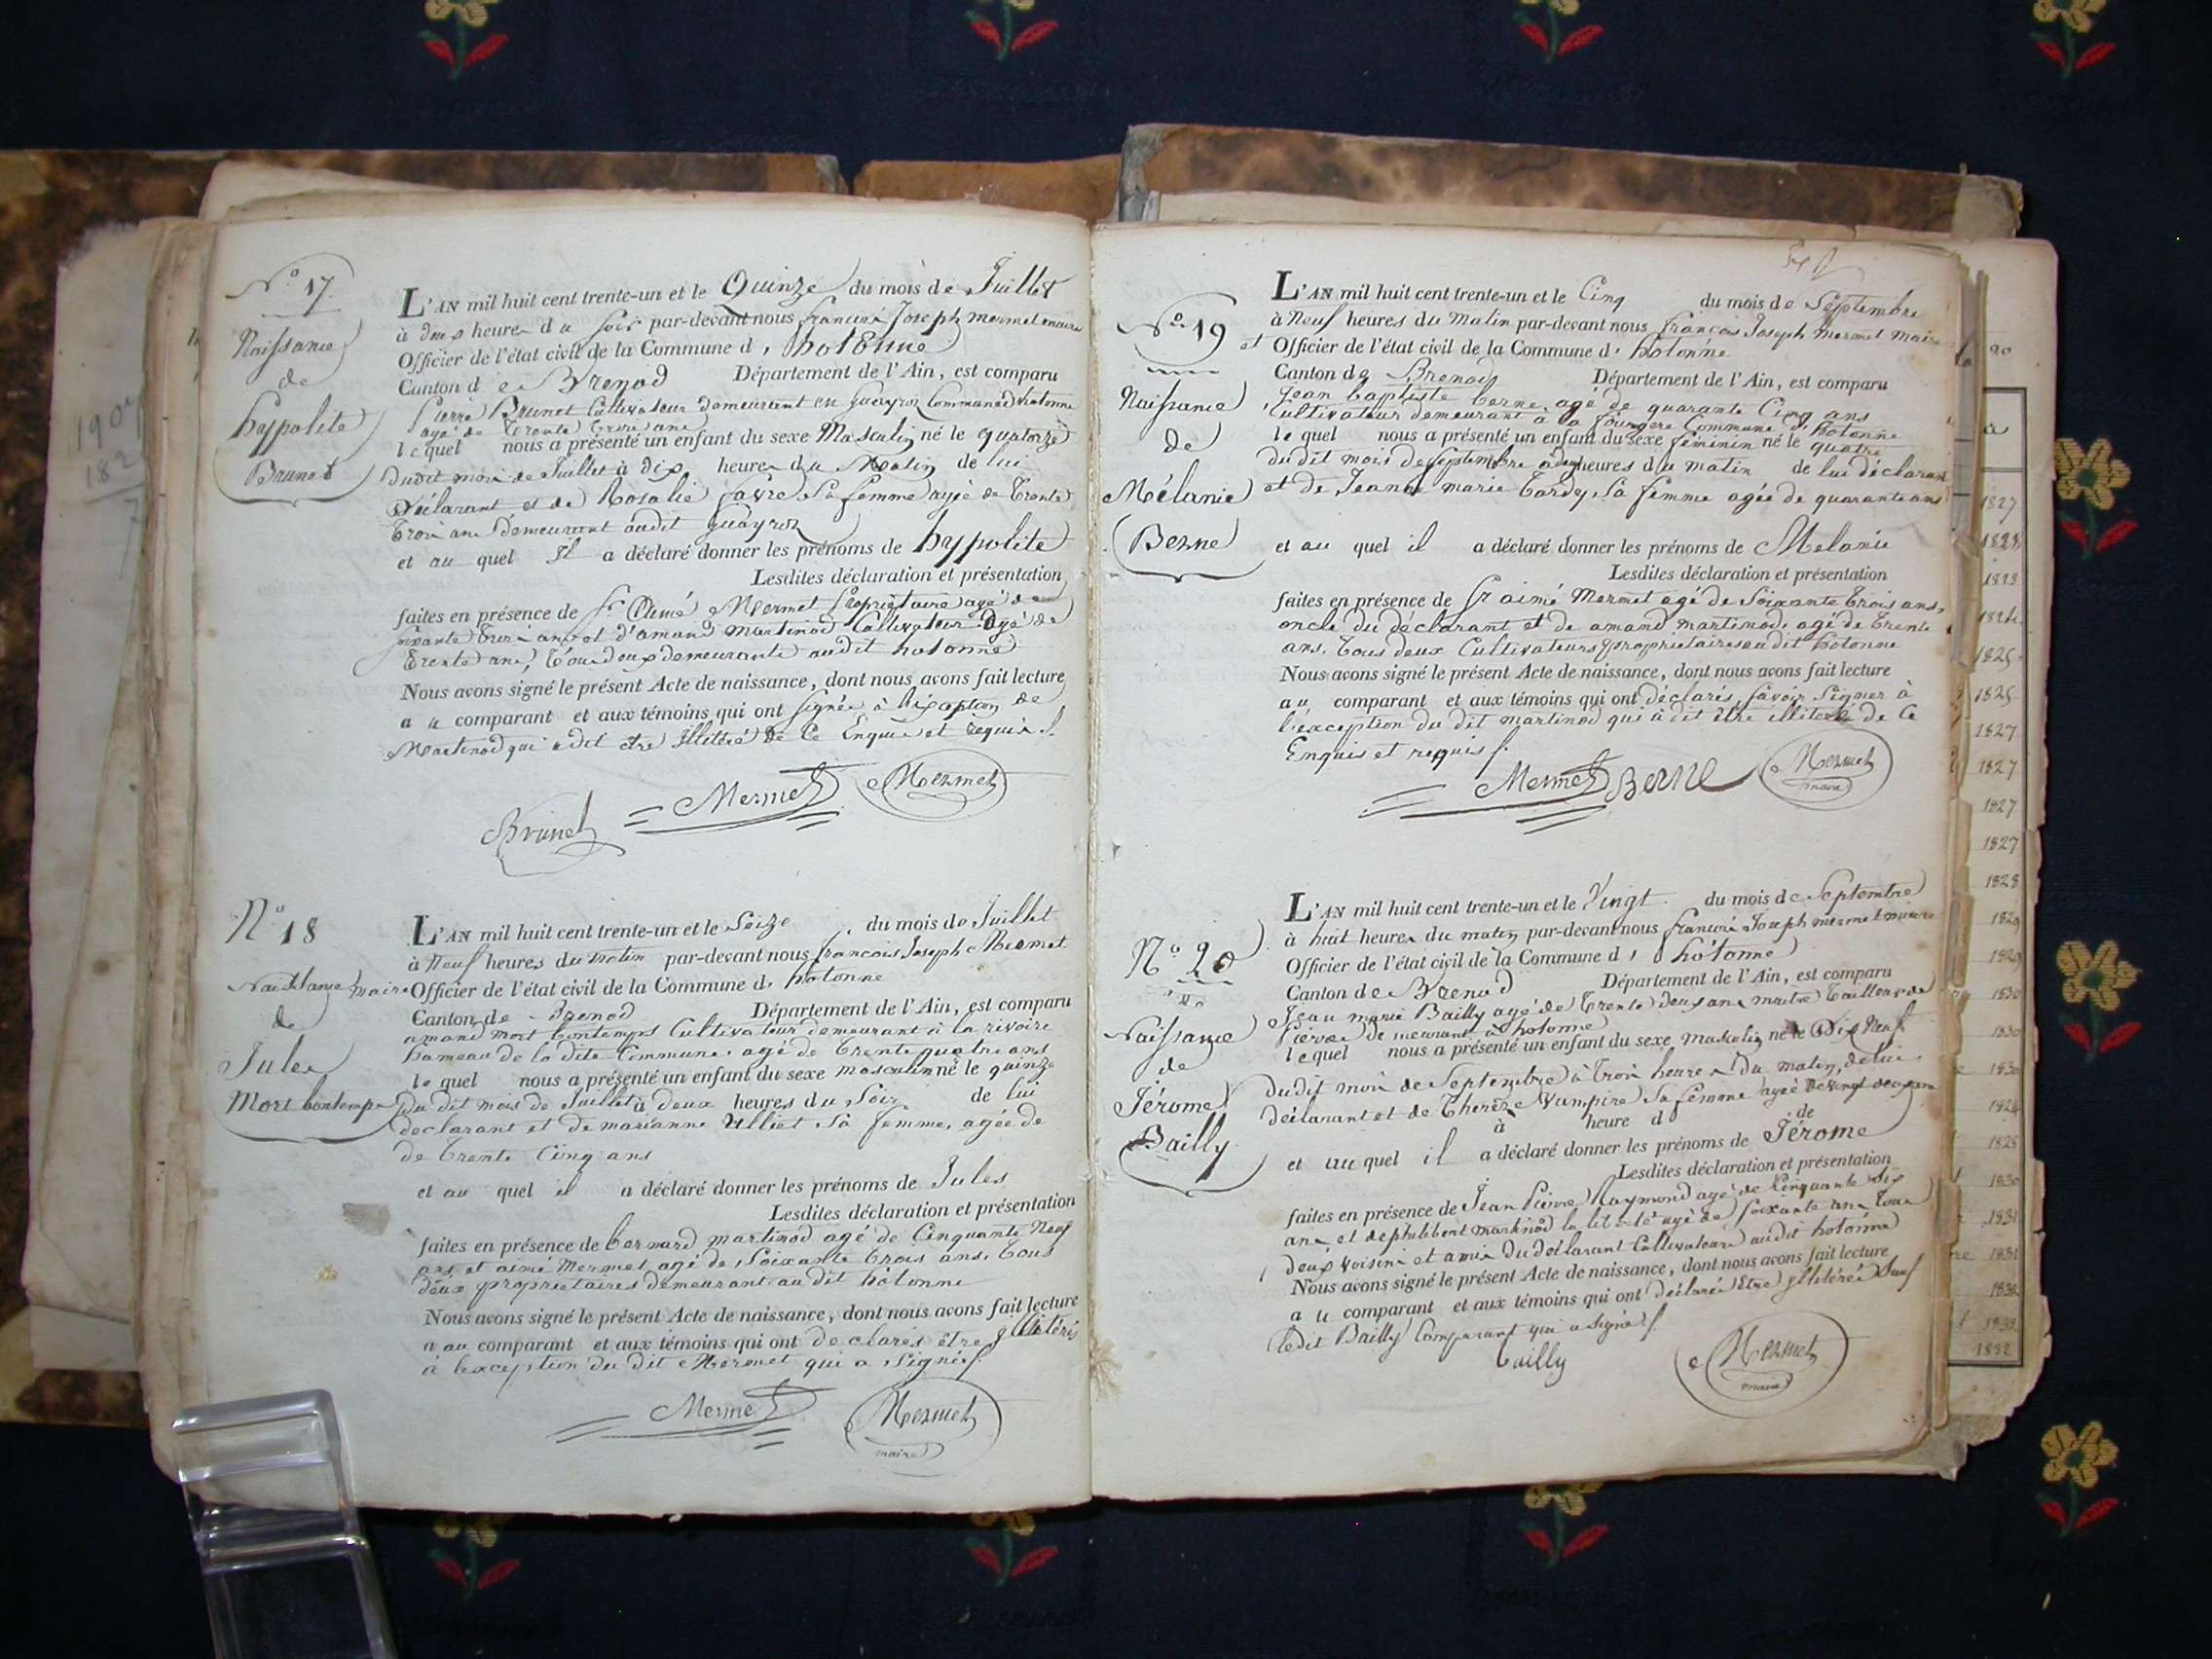 N.º 17
Naissance
de
hyppolite
Brunet
L'AN mil huit cent trente-un et le Quinze du mois de Juillet
à deux heures du soir par-devant nous francois Joseph mermet maire
Officier de l'état civil de la Commune d' hotonne
Canton de Brenod Département de l'Ain, est comparu
pierre Brunet Cultivateur demeurant en Commune d'hotonne
agé de trente trois ans
lequel nous a présenté un enfant du sexe Masculin né le quatorze
dudit mois de Juillet à dix heures du Matin de lui
Déclarant et de Rosalie favre Sa femme agée de trente
trois ans demeurant audit
et au quel Il a déclaré donner les prénoms de hyppolite
Lesdites déclaration et présentation
faites en présence de Sr Aimé Mermet propriétaire agé de
soixante trois ans et d'amand Martinod Cultivateur agé de
trente ans, tous deux demeurants audit hotonne
Nous avons signé le présent Acte de naissance, dont nous avons fait lecture
au comparant et aux témoins qui ont signés à l'exception de
Martinod qui a dit etre Illitéré de Ce Enquis et requis.
Brunet Mermet Mermet
N.º 18
Naissance
de
Jules
Mort bontemps
L'AN mil huit cent trente-un et le Seize du mois de Juillet
à Neuf heures du matin par-devant nous francois Joseph Mermet
maire Officier de l'état civil de la Commune d' hotonne
Canton de Brenod Département de l'Ain, est comparu
amand mort bontemps Cultivateur demeurant à la rivoire
hameau de la dite Commune, agé de trente quatre ans
lequel nous a présenté un enfant du sexe masculin né le quinze
du dit mois de Juillet à deux heures du Soir de lui
declarant et de marianne Ulliet Sa femme, agée de
de trente Cinq ans
et au quel il a déclaré donner les prénoms de Jules
Lesdites déclaration et présentation
faites en présence de bernard martinod agé de Cinquante Neuf
ans et aimé Mermet agé de Soixante trois ans. tous
deux proprietaires demeurant au dit hotonne
Nous avons signé le présent Acte de naissance, dont nous avons fait lecture
a au comparant et aux témoins qui ont declarés être illitérés
à l'exception du dit Mermet qui a signé
Mermet Mermet
maire
N.º 19
Naissance
de
Mélanie
Berne
L'AN mil huit cent trente-un et le Cinq du mois de Septembre
à Neuf heures du Matin par-devant nous françois Joseph Mermet Maire
et Officier de l'état civil de la Commune d' hotonne
Canton de Brenod Département de l'Ain, est comparu
Jean baptiste berne, agé de quarante Cinq ans
Cultivateur demeurant à la fougere Commune d'hotonne
lequel nous a présenté un enfant du sexe féminin né le quatre
du dit mois de Septembre à heures du matin de lui déclarant
et de Jeanne marie tardy, Sa femme agée de quarante ans
et au quel il a déclaré donner les prénoms de Melanie
Lesdites déclaration et présentation
faites en présence de Sr aimé Mermet agé de Soixante trois ans,
oncle du déclarant et de amand martinod, agé de trente
ans. tous deux Cultivateurs proprietaires au dit hotonne
Nous avons signé le présent Acte de naissance, dont nous avons fait lecture
au comparant et aux témoins qui ont déclarés savoir Signer à
l'exception du dit martinod qui à dit être illiteré de Ce
Enquis et requis
Mermet Berne Mermet
maire
N.º 20
Naissance
de
Jérome
Bailly
L'AN mil huit cent trente-un et le Vingt du mois de Septembre
à huit heures du matin par-devant nous francois Joseph mermet maire
Officier de l'état civil de la Commune d' hotonne
Canton de Brenod Département de l'Ain, est comparu
Jean marie Bailly agé de trente deux ans maitre tailleur de
pierre demeurant à hotonne
lequel nous a présenté un enfant du sexe masculin né le Dix Neuf
dudit mois de Septembre à trois heures du matin, de lui
déclarant et de Therèze Vampire Sa femme agée de vingt deux ans
à heure d de
et au quel il a déclaré donner les prénoms de Jérome
Lesdites déclaration et présentation
faites en présence de Jean Pierre Raymond agé de Cinquante Six
ans et de philibert martinod la liberté agé de soixante ans tous
deux voisins et amis du déclarant Cultivateurs audit hotonne
Nous avons signé le présent Acte de naissance, dont nous avons fait lecture
au comparant et aux témoins qui ont déclarés Etre Illitérés Sauf
ledit Bailly Comparant qui a signé
bailly Mermet
maire
1827
1827
1827
1827
1827
1828
1829
1829
1830
1830
1830
1828
1830
1831
1831
1832